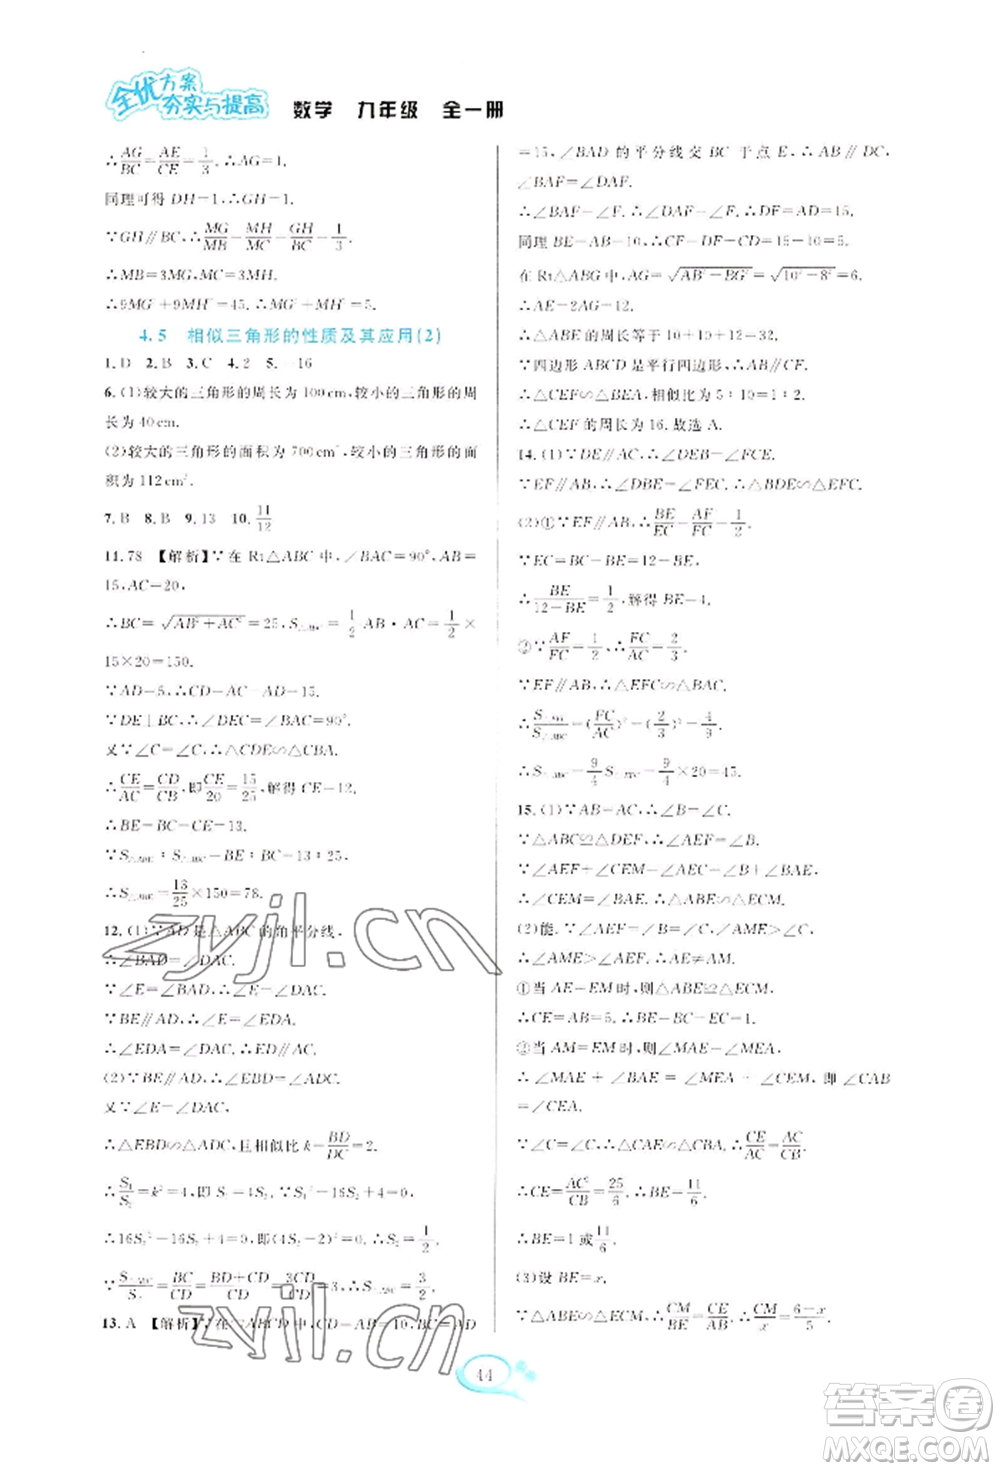 全优方案
夯实与提高 数学 九年级 全一册
∴AG/BC=AE/CE=1/3.∴AG=1.
同理可得 DH=1,∴GH=1.
∵GH∥BC,∴MG/MB=MH/MC=GH/BC=1/3.
∴MB=3MG,MC=3MH.
∴9MG²+9MH²=45.∴MG²+MH²=5.
4.5 相似三角形的性质及其应用(2)
1.D 2.B 3.C 4.2 5.—16
6.(1)较大的三角形的周长为100cm,较小的三角形的周
长为40cm.
(2)较大的三角形的面积为700cm²,较小的三角形的面
积为112cm².
7.B 8.B 9.13 10.11/12
11.78 【解析】∵在Rt△ABC中,∠BAC=90°,AB=
15,AC=20,
∴BC=√(AB²+AC²)=25,S△ABC=1/2 AB·AC=1/2×
15×20=150.
∵AD=5,∴CD=AC-AD=15.
∵DE⊥BC,∴∠DEC=∠BAC=90°.
又∵∠C=∠C,∴△CDE∽△CBA.
∴CE/AC=CD/CB,∴CE/20=15/25,解得CE=12,
∴BE=BC-CE=13.
∵S△ABE∶S△ABC=BE∶BC=13∶25,
∴S△ABE=13/25×150=78.
12.(1)∵AD是△ABC的角平分线,
∴∠BAD=∠DAC.
∵∠E=∠BAD,∴∠E=∠DAC.
∵BE∥AD,∴∠E=∠EDA.
∴∠EDA=∠DAC.∴ED∥AC.
(2)∵BE∥AD,∴∠EBD=∠ADC.
又∵∠E=∠DAC,
∴△EBD∽△ADC,且相似比k=BD/DC=2.
∴S₁/S₂=k²=4,即S₁=4S₂.∵S₁²-16S₂+4=0,
∴16S₂²-16S₂+4=0,即(4S₂-2)²=0.∴S₂=1/2.
∵S△ABC/S₂=BC/CD=(BD+CD)/CD=3CD/CD=3,∴S△ABC=3/2.
13.A 【解析】∵在▱ABCD中,CD=AB=10,BC=AD
=15,∠BAD的平分线交BC于点E,∴AB∥DC,
∠BAF=∠DAF.
∴∠BAF=∠F.∴∠DAF=∠F.∴DF=AD=15.
同理BE=AB=10,∴CF=DF-CD=15-10=5.
在Rt△ABG中,∴AG=√(AB²-BG²)=√(10²-8²)=6.
∴AE=2AG=12.
∴△ABE的周长等于10+10+12=32.
∵四边形ABCD是平行四边形,
∴△CEF∽△BEA,相似比为5∶10=1∶2.
∴△CEF的周长为16.故选A.
14.(1)∵DE∥AC,∴∠DEB=∠FCE.
∵EF∥AB,∴∠DBE=∠FEC,∴△BDE∽△EFC.
(2)①∵EF∥AB,∴BE/EC=AF/FC=1/2.
∵EC=BC-BE=12-BE,
∴BE/(12-BE)=1/2,解得BE=4.
②∵AF/FC=1/2,∴FC/AC=2/3.
∵EF∥AB,∴△EFC∽△BAC.
∴S△EFC/S△ABC=(FC/AC)²=(2/3)²=4/9.
∴S△ABC=9/4 S△EFC=9/4×20=45.
15.(1)∵AB=AC,∴∠B=∠C.
∵△ABC≌△DEF,∴∠AEF=∠B.
∵∠AEF+∠CEM=∠AEC=∠B+∠BAE,
∴∠CEM=∠BAE.∴△ABE∽△ECM.
(2)能.∵∠AEF=∠B=∠C,∠AME>∠C,
∴∠AME>∠AEF.∴AE≠AM.
①当AE=EM时,则△ABE≌△ECM,
∴CE=AB=5.∴BE=BC-EC=1.
②当AM=EM时,则∠MAE=∠MEA.
∴∠MAE+∠BAE=∠MEA+∠CEM,即∠CAB
=∠CEA.
∵∠C=∠C,∴△CAE∽△CBA.∴CE/AC=AC/CB.
∴CE=AC²/CB=25/6.∴BE=11/6.
∴BE=1或11/6.
(3)设BE=x.
∵△ABE∽△ECM,∴CM/BE=CE/AB.∴CM/x=(6-x)/5.
44
zyjl.cn
zyjl.cn
答案圈
MXQE.COM